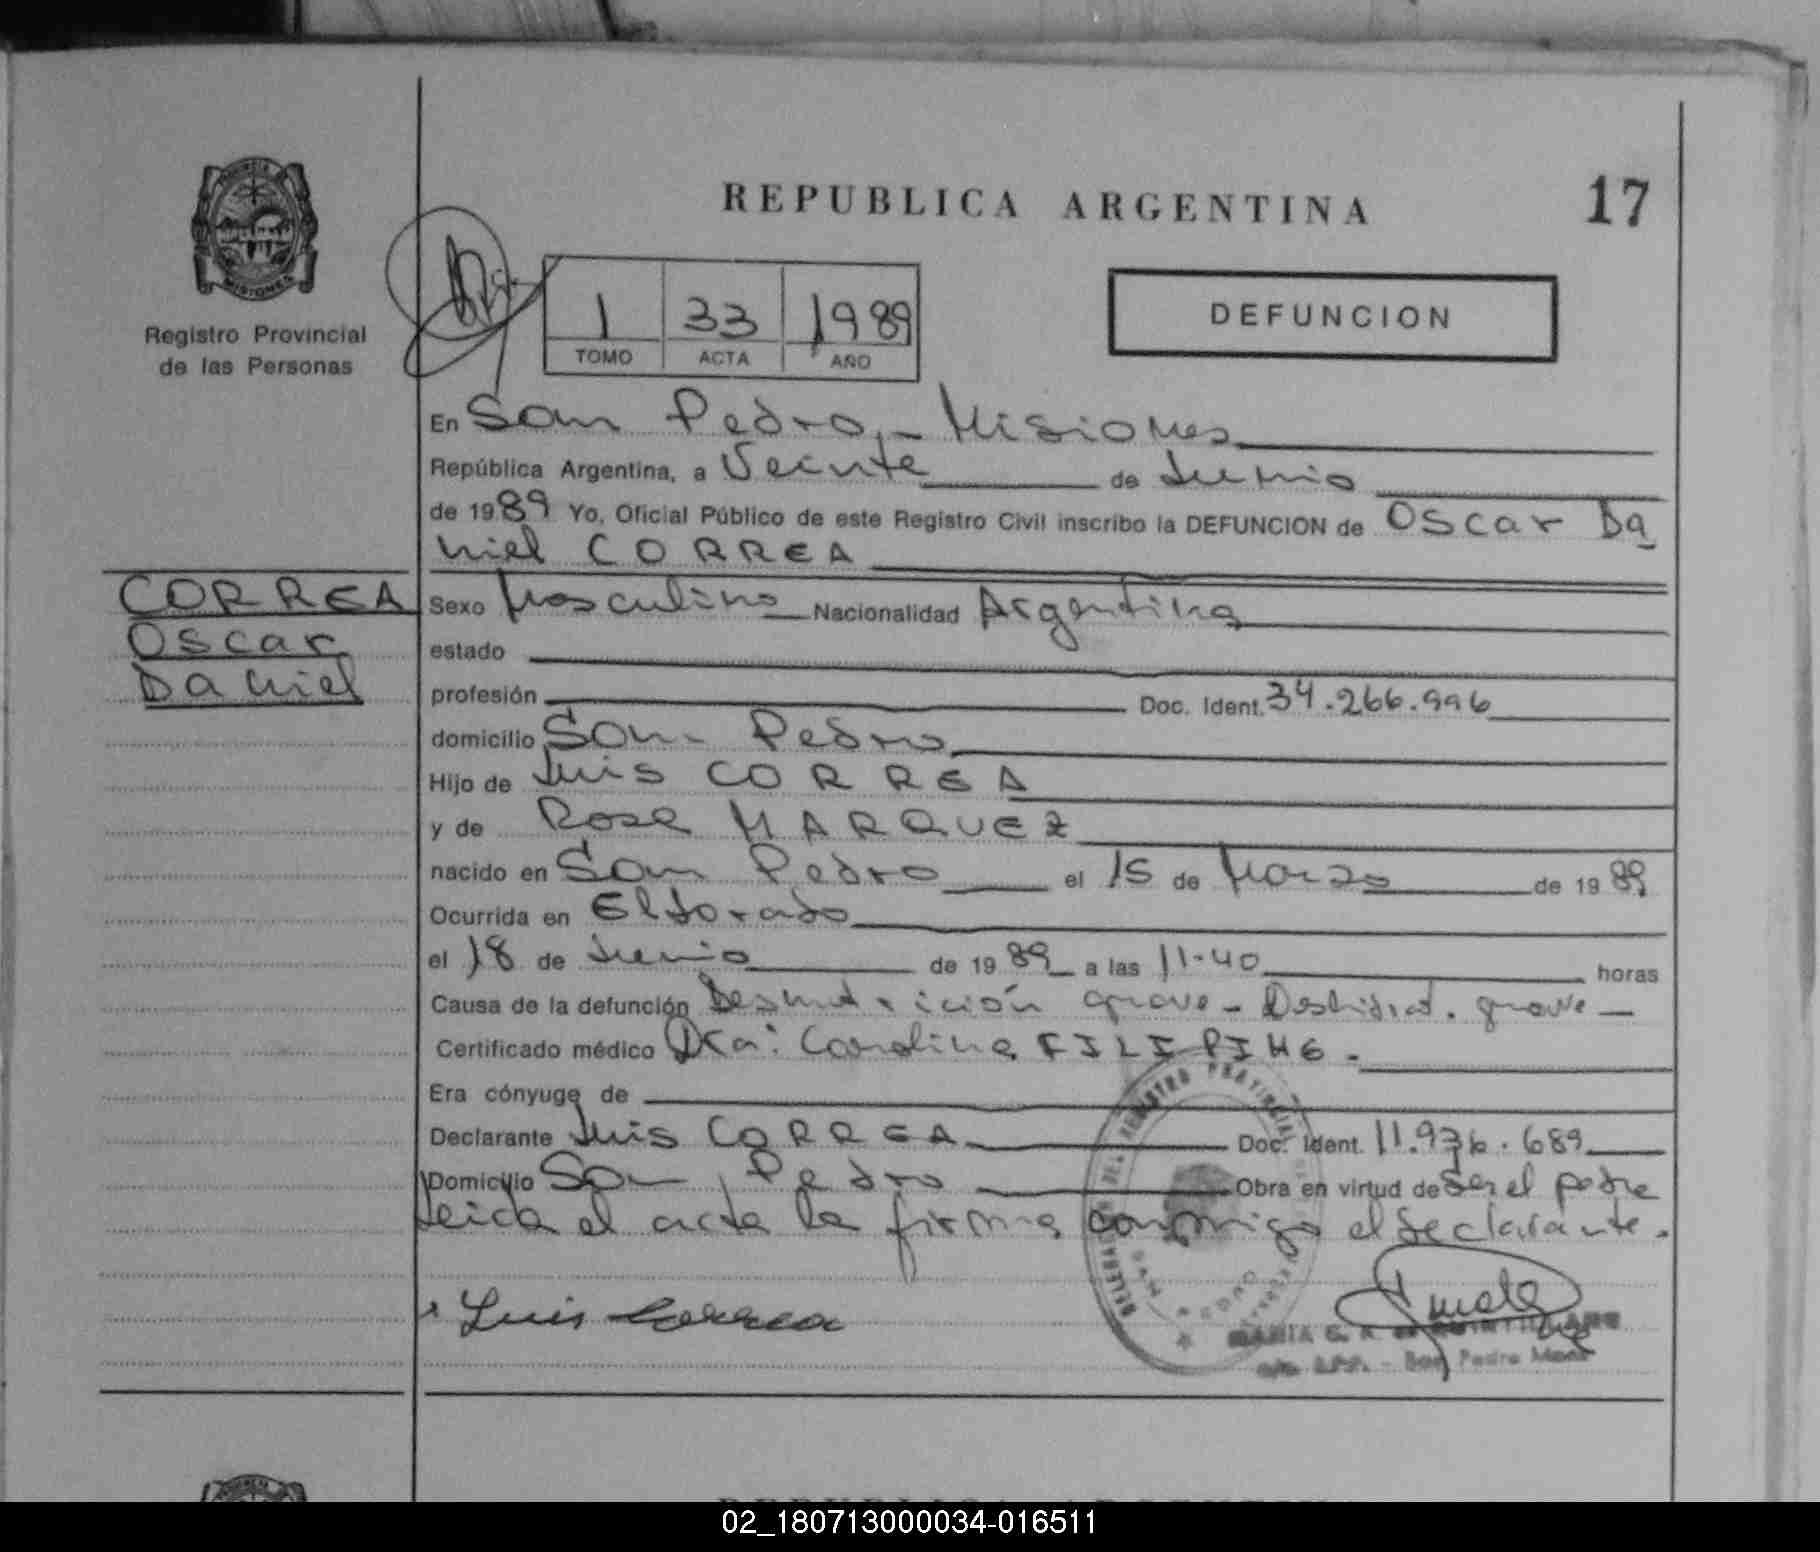 REPUBLICA ARGENTINA
17
MISIONES
Registro Provincial
de las Personas
1 33 1989
TOMO ACTA AÑO
DEFUNCION
En San Pedro,- Misiones
República Argentina, a Veinte de Junio
de 1989 Yo, Oficial Público de este Registro Civil inscribo la DEFUNCION de Oscar Da
niel CORREA
CORREA
Oscar
Daniel
Sexo Masculino Nacionalidad Argentina
estado
profesión Doc. Ident. 34.266.996
domicilio San Pedro
Hijo de Luis CORREA
y de Rosa MARQUEZ
nacido en San Pedro el 15 de Marzo de 1989
Ocurrida en Eldorado
el 18 de Junio de 1989 a las 11.40 horas
Causa de la defunción Desnutrición grave - Deshidrat. grave -
Certificado médico Dra: Carolina FILIPING.
Era cónyuge de
Declarante Luis CORREA Doc. Ident. 11.936.689
Domicilio San Pedro Obra en virtud de ser el padre
leida el acta la firma conmigo el declarante.
Luis Correa
MARIA
San Pedro
REPUBLICA ARGENTINA
02_180713000034-016511